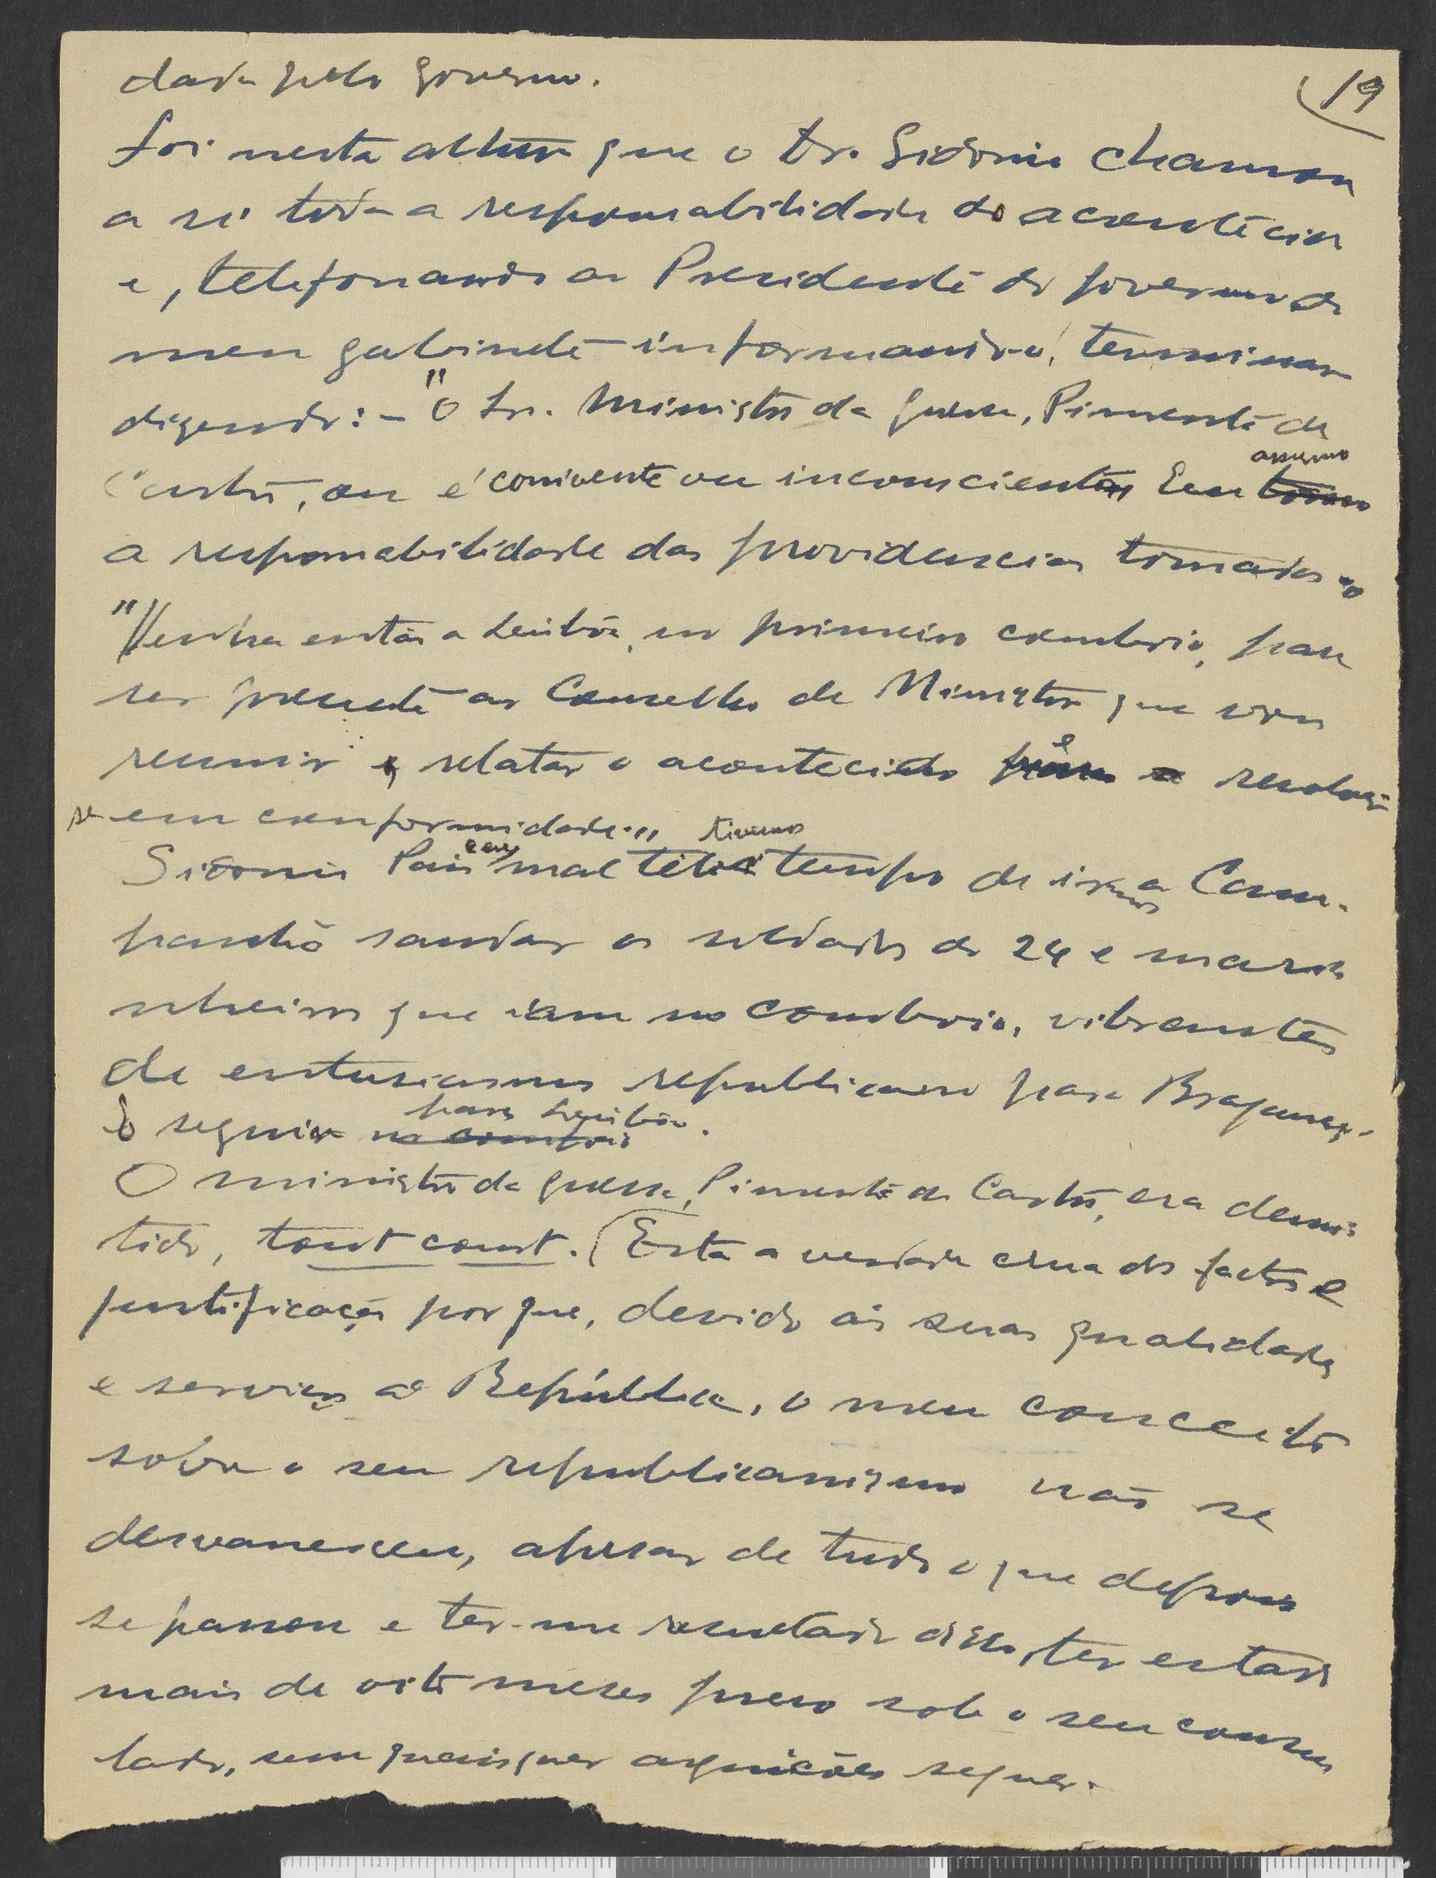 19
dada pelo governo.
Foi nesta altura que o Dr. Sidonio chamou
a si toda a responsabilidade do acontecido
e, telefonando ao Presidente do governo do
meu gabinete informando-o, terminou
dizendo: - "O Sr. Ministro da guerra, Pimenta de
Castro, ou é conivente ou inconsciente. Eu tomo
assumo
a responsabilidade das providencias tomadas."
"Venha então a Lisbôa, no primeiro comboio, para
ser presente ao Conselho de Ministros que vou
reunir e relatar o acontecido para e resolver
se em conformidade."
Sidonio Pais e eu mal tivemos tempo de irmos a Cam-
panhã saudar os soldados do 24 e mari-
nheiros que iam no comboio, vibrantes
de entusiasmo republicano para Bragança.
E seguir no comboio para Lisbôa.
O ministro da guerra, Pimenta de Castro, era demi-
tido, tout court. (Esta a verdade crua dos factos e
justificação porque, devido ás suas qualidades
e serviços á República, o meu conceito
sobre o seu republicanismo não se
desvaneceu, apesar de tudo o que depois
se passou e ter-me resultado disso, ter estado
mais de oito meses preso sob o seu consu-
lado, sem quaisquer arguições sequer.